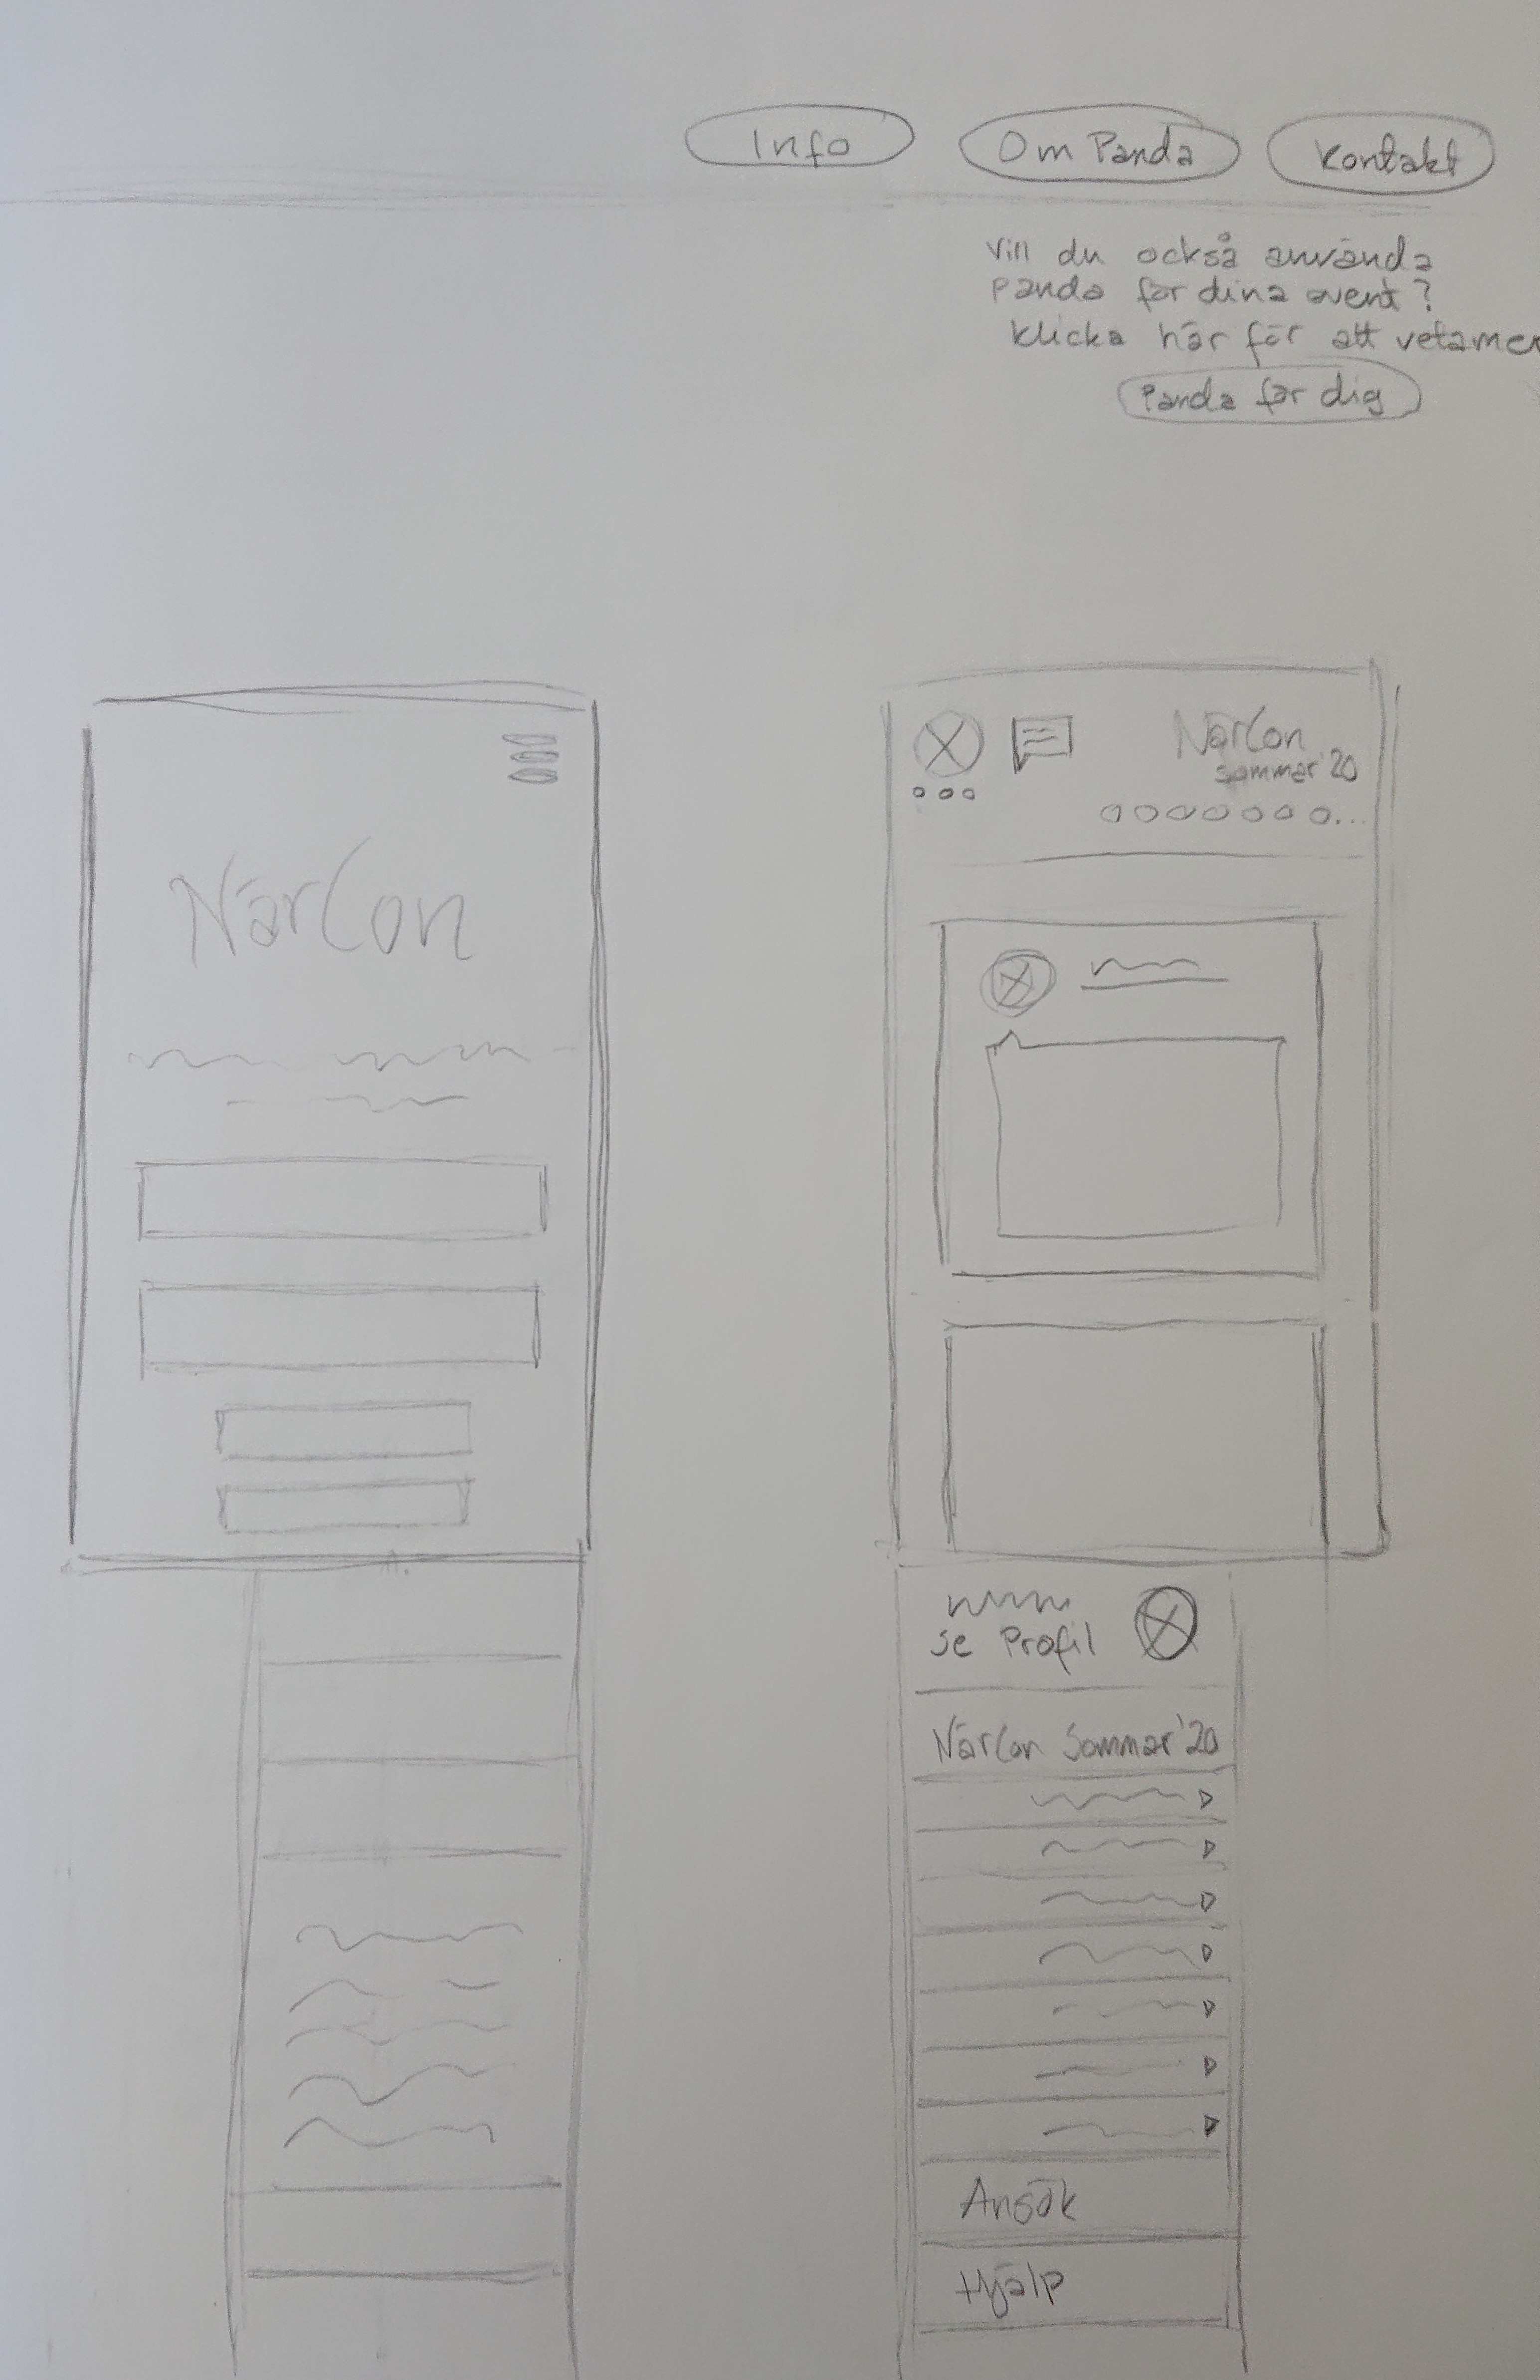 Info
Om Panda
Kontakt
Vill du också använda
panda för dina event?
Klicka här för att veta mer
Panda för dig
NärCon
NärCon
sommar '20
Se Profil
NärCon Sommar '20
Ansök
Hjälp